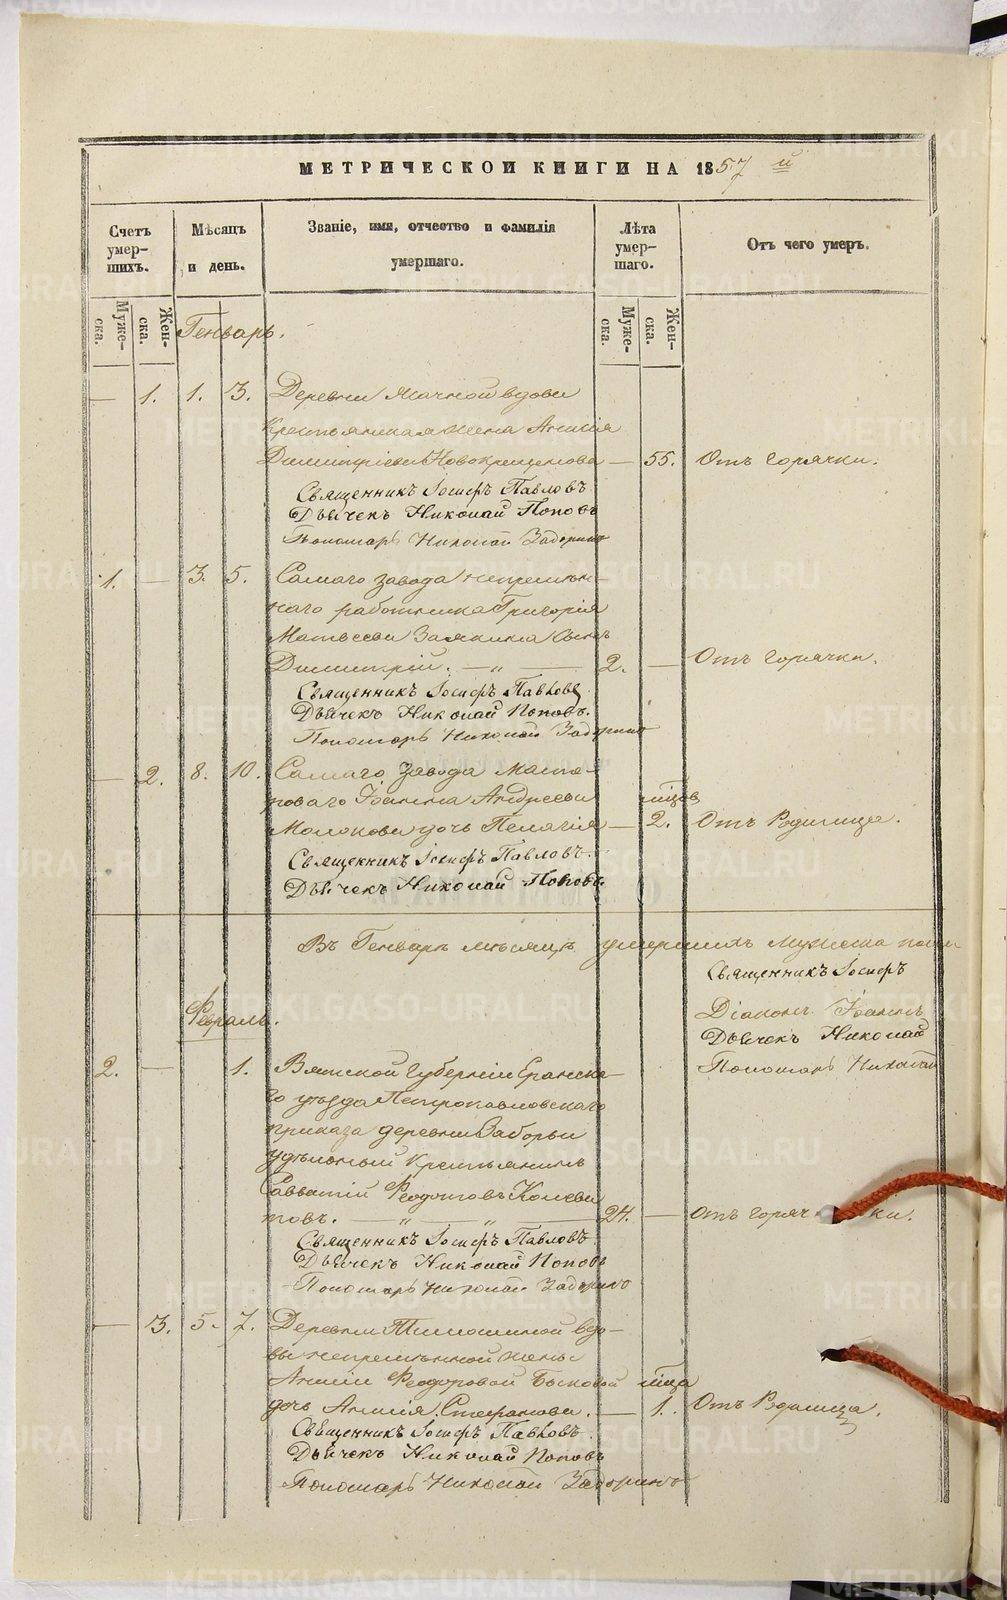 МЕТРИЧЕСКОЙ КНИГИ НА 1857 й
Счетъ умер-шихъ.
Мѣсяцъ и день.
Званіе, имя, отчество и фамилія умершаго.
Лѣта умер-шаго.
Отъ чего умеръ.
Муже-ска.
Жен-ска.
Муже-ска.
Жен-ска.
Генварь.
— 1. 1. 3. Деревни Ячной вдова
Крестьянская жена Анисія
Димитріева Новокрещенова — 55. Отъ горячки.
Священникъ Іосифъ Павловъ
Дьячекъ Николай Поповъ
Пономарь Николай Задоринъ
1. — 3. 5. Самаго завода непремѣн-
наго работника Григорія
Матвеева Заякина сынъ
Димитрій. — „ — 2. — Отъ горячки.
Священникъ Іосифъ Павловъ
Дьячекъ Николай Поповъ.
Пономарь Николай Задоринъ
— 2. 8. 10. Самаго завода масте-
роваго Іоанна Андреева мѣсяц.
Молокова дочь Пелагія — 2. Отъ Родимца.
Священникъ Іосифъ Павловъ.
Дьячекъ Николай Поповъ.
Въ Генварѣ мѣсяцѣ умершихъ мужеска пола
Священникъ Іосифъ
Діаконъ Іоаннъ
Дьячекъ Николай
Пономарь Николай
Февраль.
2. — 1. Вятской Губерніи Еранска-
го уѣзда Петропавловскаго
приказа деревни Заборьи
удѣльный крестьянинъ
Савватій Ѳеодотовъ
товъ. — „ — „ — 24. — Отъ горячки.
Священникъ Іосифъ Павловъ
Дьячекъ Николай Поповъ
Пономарь Николай Задоринъ
— 3. 5. 7. Деревни Тимошиной вдо-
вы непремѣнной жены
Анны Ѳеодоровой мѣсяца
дочь Анисія Стефанова. — 1. Отъ Родимца.
Священникъ Іосифъ Павловъ.
Дьячекъ Николай Поповъ
Пономарь Николай Задоринъ
METRIKI.GASO-URAL.RU